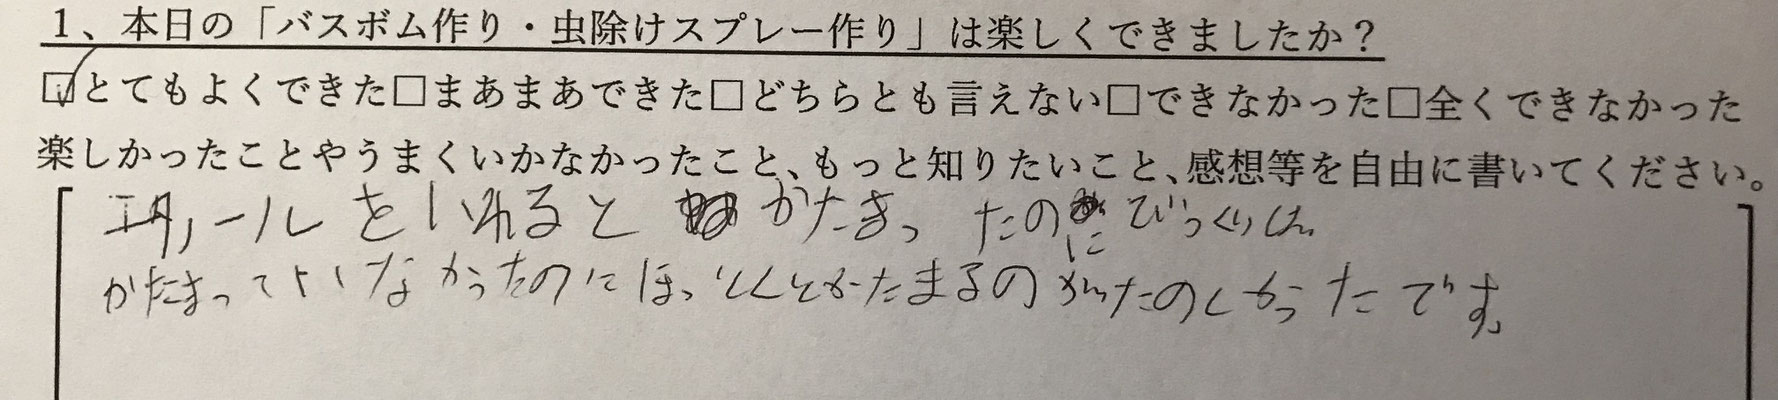 1、本日の「バスボム作り・虫除けスプレー作り」は楽しくできましたか?
☑とてもよくできた□まあまあできた□どちらとも言えない□できなかった□全くできなかった
楽しかったことやうまくいかなかったこと、もっと知りたいこと、感想等を自由に書いてください。
エタノールをいれると かたまったのにびっくりした。
かたまっていなかったのにほっとくとかたまるのがたのしかったです。